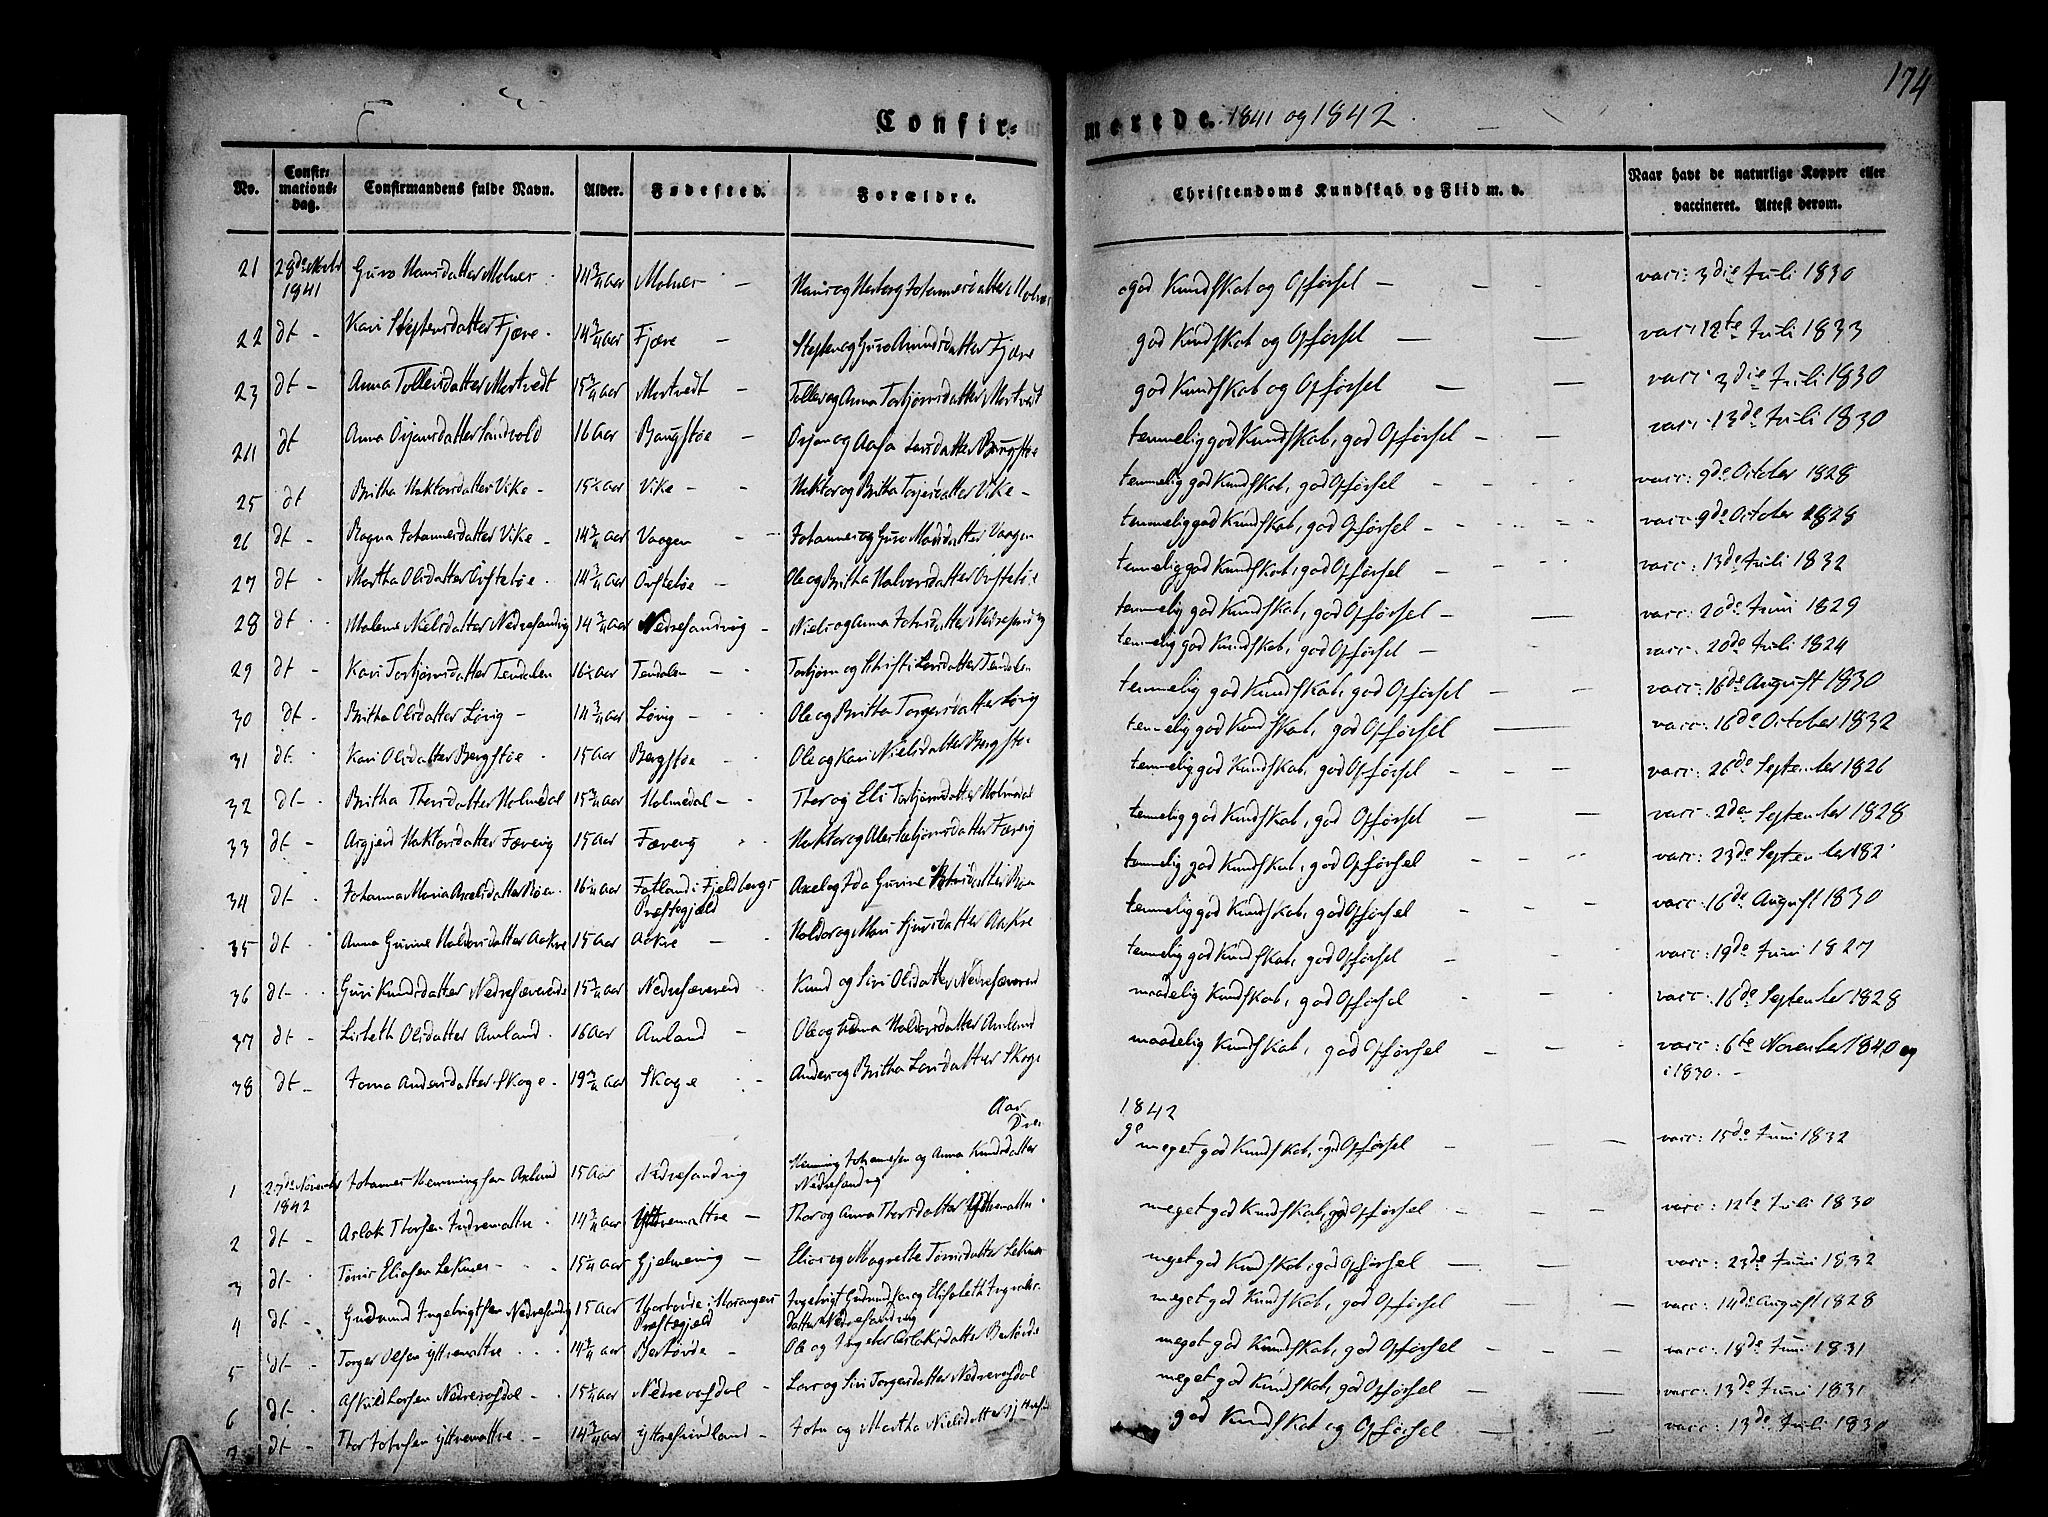 174
Confir- merede. 1841 og 1842
No. Confir-mations-dag. Confirmandens fulde Navn. Alder. Fødested. Forældre. Christendoms Kundskab og Flid m. v. Naar havt de naturlige Kopper eller vaccineret. Attest derom.
21 28de Novbr 1841 Guro Hansdatter Molnes 14 3/4 Aar Molnes Hans og Herborg Johannesdatter Molnes god Kundskab og Opførsel vacc: 3die Juli 1830
22 dt Kari Stephensdatter Fjære 14 3/4 Aar Fjære Stephen og Guro Amundsdatter Fjære god Kundskab og Opførsel vacc 12te Juli 1833
23 dt Anna Tollevsdatter Mortvedt 15 3/4 Aar Mortvedt Tollev og Anna Torbjørnsdatter Mortvedt god Kundskab og Opførsel vacc 3die Juli 1830
24 dt Anna Ørjansdatter 16 Aar Ørjan og Aasa Larsdatter temmelig god Kundskab, god Opførsel vacc: 13de Juli 1830
25 dt Britha Haktorsdatter Vike 15 1/4 Aar Vike Haktor og Britha Torgersdatter Vike temmelig god Kundskab, god Opførsel vacc: 9de October 1828
26 dt Ragna Johannesdatter Vike 14 3/4 Aar Vaagen Johannes og Guro Madsdatter Vaagen temmelig god Kundskab, god Opførsel vacc: 9de October 1828
27 dt Martha Olsdatter Øvstebøe 14 3/4 Aar Øvstebøe Ole og Britha Halvorsdatter Øvstebøe temmelig god Kundskab, god Opførsel vacc: 13de Juli 1832
28 dt Malene Nielsdatter Nedresandvig 14 3/4 Aar Nedresandvig Niels og Anna Johnsdatter Nedresandvig temmelig god Kundskab, god Opførsel vacc: 20de Juni 1829
29 dt Kari Torbjørnsdatter Tendalen 16 1/4 Aar Tendalen Torbjørn og Christi Larsdatter Tendalen temmelig god Kundskab, god Opførsel vacc: 20de Juli 1824
30 dt Britha Olsdatter Løvig 14 3/4 Aar Løvig Ole og Britha Torgersdatter Løvig temmelig god Kundskab, god Opførsel vacc: 16de August 1830
31 dt Kari Olsdatter Bergstøe 15 Aar Bergstøe Ole og Kari Nielsdatter Bergstøe temmelig god Kundskab, god Opførsel vacc: 16de October 1832
32 dt Britha Thorsdatter Holmedal 15 3/4 Aar Holmedal Thor og Eli Torbjørnsdatter Holmedal temmelig god Kundskab, god Opførsel vacc: 26de September 1826
33 dt Asgjerd Haktorsdatter Færevig 15 Aar Færevig Haktor og Færevig temmelig god Kundskab, god Opførsel vacc: 2den September 1828
34 dt Johanna Maria Axelsdatter Bøen 16 1/4 Aar Fatland i Fjeldbergs Præstegjeld Axel og Ida Gurine Bøen temmelig god Kundskab, god Opførsel vacc: 23de September 182
35 dt Anna Gurine Haldorsdatter Aakre 15 Aar Aakre Haldor og Mari Sjursdatter Aakre temmelig god Kundskab, god Opførsel vacc: 16de August 1830
36 dt Guri Knudsdatter Nedresævereide 15 3/4 Aar Nedresævereid Knud og Siri Olsdatter Nedresævereid temmelig god Kundskab, god Opførsel vacc: 19de Juni 1827
37 dt Lisbeth Olsdatter Amland 16 Aar Amland Ole og Anna Haldorsdatter Amland maadelig Kundskab, god Opførsel vacc: 16de September 1828
38 dt Andersdatter Skoge 19 3/4 Aar Skoge Anders og Britha Larsdatter Skoge maadelig Kundskab, god Opførsel vacc: 6te November 1840 og i 1830.
Aar 1842
Drenge
1 27de November 1842 Johannes Henningsen Axland 15 Aar Nedresandvig Henning Johannesen og Anna Knudsdatter Nedresandvig meget god Kundskab, god Opførsel vacc: 15de Juni 1832
2 dt Aslak Thorsen Indrematre 14 3/4 Aar Yttrematre Thor og Anna Thorsdatter Yttrematre meget god Kundskab, god Opførsel vacc: 12te Juli 1830
3 dt Tørris Eliasen Leknes 15 1/4 Aar Gjelmevig Elias og Magrethe Tørrisdatter Leknes meget god Kundskab, god Opførsel vacc: 23de Juni 1832
4 dt Gudmund Ingebrigtsen Nedresandvig 15 Aar i Præstegjeld Ingebrigt Gudmundsen og Elisabeth datter Nedresandvig meget god Kundskab, god Opførsel vacc: 14de August 1828
5 dt Torger Olsen Yttrematre 14 3/4 Aar Ole og Ingebor Aslaksdatter meget god Kundskab, god Opførsel vacc: 18de Juni 1831
6 dt Askild Larsen Nedrevasdal 15 1/4 Aar Nedrevasdal Lars og Siri Torgersdatter Nedrevasdal meget god Kundskab, god Opførsel vacc: 13de Juni 1831
7 dt Thor Johnsen Yttrematre 14 3/4 Aar John og Martha Nielsdatter god Kundskab og Opførsel vacc: 13de Juli 1830